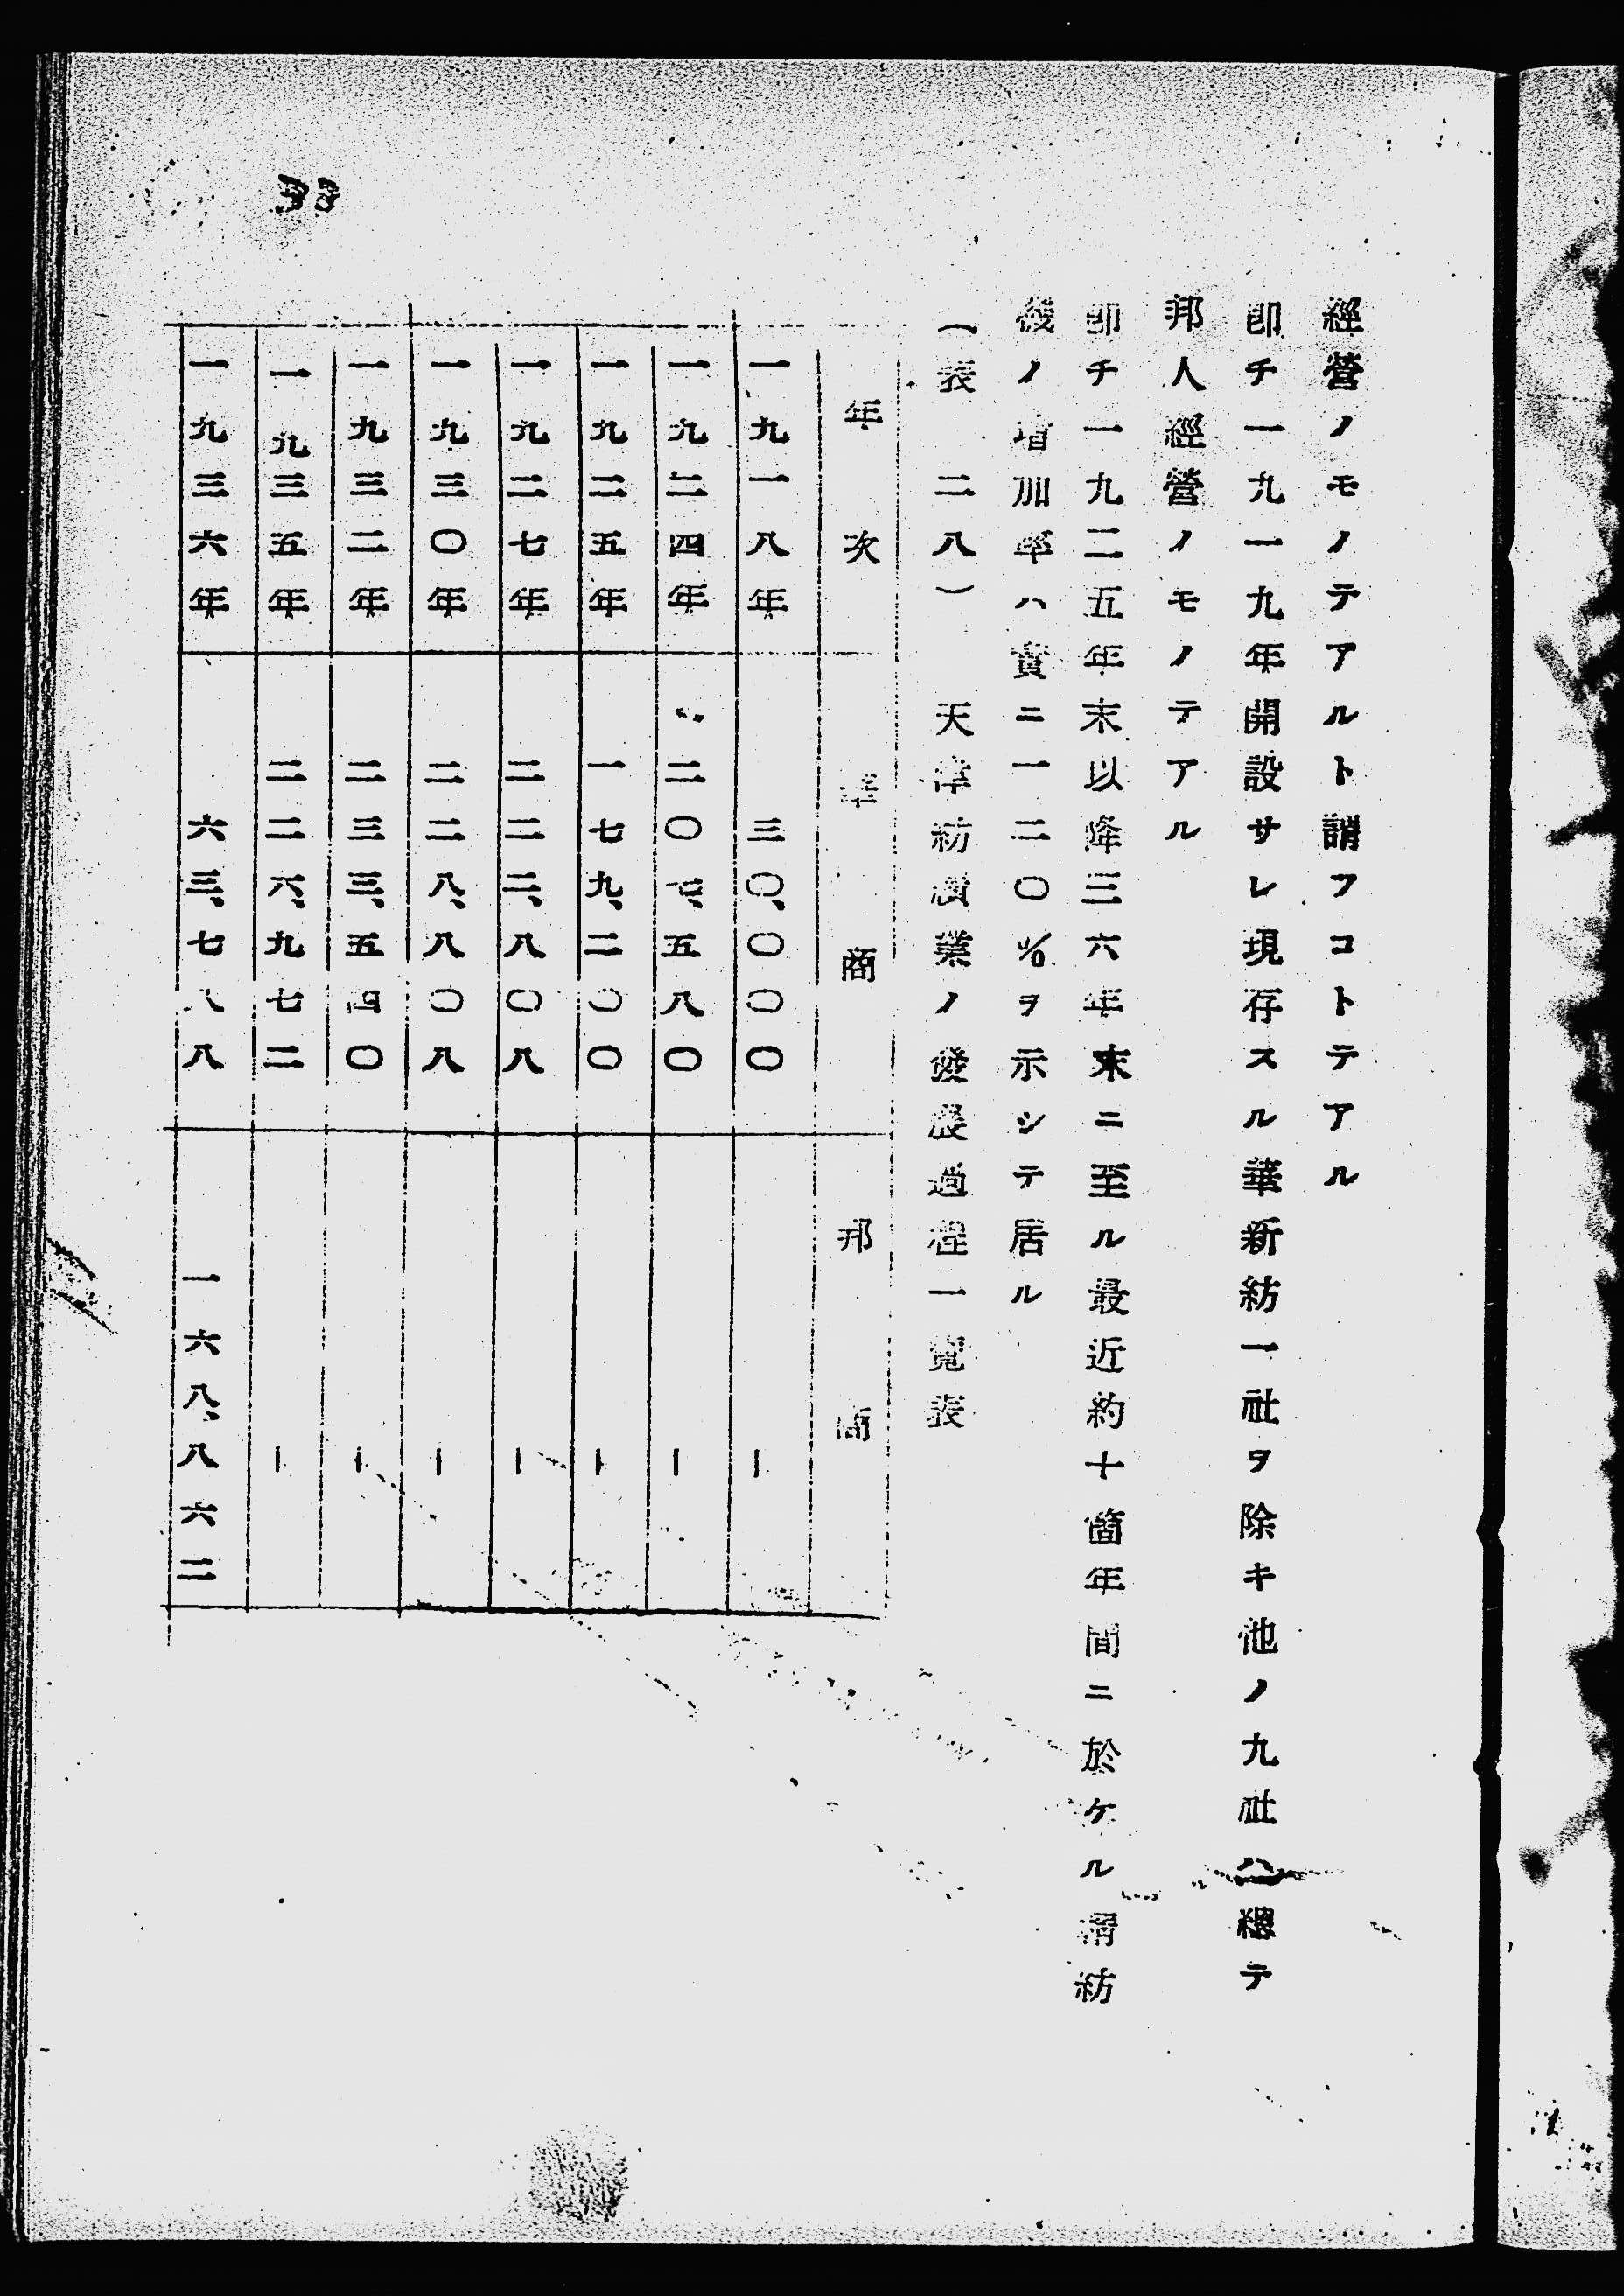 33
經營ノモノテアルト謂フコトテアル
卽チ一九一九年開設サレ現存スル華新紡一社ヲ除キ他ノ九社ハ總テ
邦人經營ノモノテアル
卽チ一九二五年末以降三六年末ニ至ル最近約十箇年間ニ於ケル精紡
機ノ增加率ハ實ニ一二〇%ヲ示シテ居ル
(表 二八) 天津紡績業ノ發展過程一覽表
年次 華商 邦商
一九一八年 三〇、〇〇〇 ー
一九二四年 二〇七、五八〇 ー
一九二五年 一七九、二〇〇 ー
一九二七年 二二二、八〇八 ー
一九三〇年 二二八、八〇八 ー
一九三二年 二三三、五四〇 ー
一九三五年 二二六、九七二 ー
一九三六年 六三、七八八 一六八、八六二